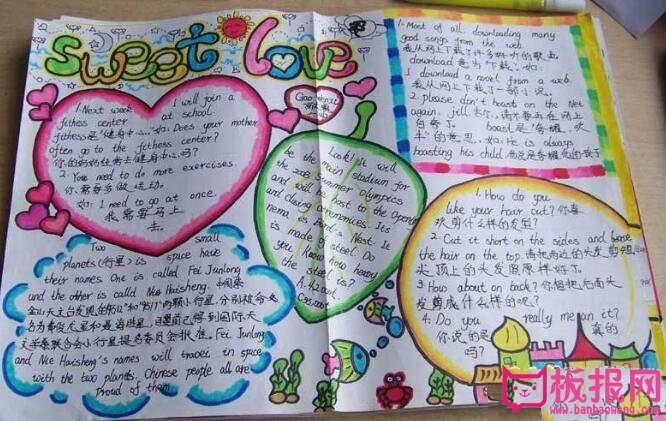 sweet love
1.Next week I will join a
fitness center at school.
fitness是"健身中心"如: Does your mother
often go to the fitness center?
你的妈妈经常去健身中心吗?
2. You need to do more exercises.
你需要多做运动.
如: I need to go at once.
我需要马上
去.
Look! It will
be the main stadium for
the 2008 Summer Olympics
and will be host to the opening
and closing ceremonies. Its
name is Bird's Nest. It
is made of steel. Do
you know how heavy
the steel is?
A.42,000t
1. Most of all downloading many
good songs from the web.
我从网上下载了许多好听的歌曲
download 意为"下载".如:
I download a novel from a web.
我从网上下载了一部小说.
2. please don't boast on the Net
again, jell
boast是"吹
牛"的意思, 如: He is always
boasting his child.
1. How do you
like your hair cut? 你喜
欢剪什么样的发型?
2. Cut it short on the sides and leave
the hair on the top. 请把两边的头发剪短
头顶上的头发留原样好了.
3 How about on back? 你想把后面头
发剪成什么样的呢?
4. Do you really mean it?
你说的是真的
吗?
Two small
planets (行星) in space have
their names. One is called Fei Junlong
and the other is called Nie Haisheng. 中国紫
金山天文台发现的 两颗小行星,分别被命
名为费俊龙星和聂海胜星,日前已得到国际天
文学联合会小行星提名委员会批准. Fei Junlong
and Nie Haisheng's names will travel in space
with the two planets. Chinese people all are
Proud of them
板报网
www.banbaowang.com